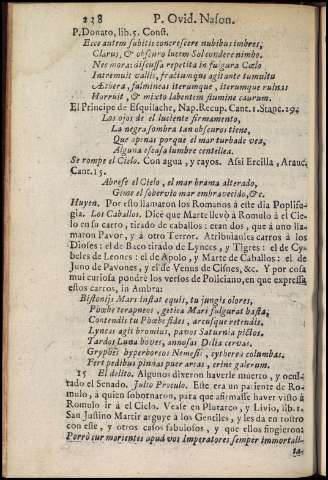 228 P. Ovid. Nason.
P. Donato, lib. 5. Const.
Ecce autem subitis concrescere nubibus imbres,
Clarus, & obscuro lucem Sol condere nimbo.
Nec mora: discussa repetita in fulgura Cœlo
Intremuit vallis, fractumque agitante tumultu
Æthera, fulmineas iterumque, iterumque ruinas
Horruit, & mixto labentem flumine caurum.
El Principe de Esquilache, Nap. Recup. Cant. 1. Stanc. 29.
Los ojos de el luciente firmamento,
La negra sombra tan obscuros tiene,
Que apenas porque el mar turbado vea,
Alguna escasa lumbre centellea.
Se rompe el Cielo. Con agua, y rayos. Assi Ercilla, Arauc.
Cant. 15.
Abrese el Cielo, el mar brama alterado,
Gime el sobervio mar embravecido, &c.
Huyen. Por esto llamaron los Romanos à este dia Poplifu-
gia. Los Caballos. Dice que Marte llevò à Romulo à el Cie-
lo en su carro, tirado de caballos: eran dos, que à uno lla-
maron Pavor, y à otro Terror. Atribuianles carros à los
Dioses: el de Baco tirado de Lynces, y Tigres: el de Cy-
beles de Leones: el de Apolo, y Marte de Caballos: el de
Juno de Pavones, y el de Venus de Cisnes, &c. Y por cosa
mui curiosa pondre los versos de Policiano, en que expressa
estos carros, in Ambra:
Bistonijs Mars instat equis, tu jungis olores,
Phœbe terapneos, getica Mari fulgurat hasta,
Contendis tu Phœbe fides, arcusque retendis,
Lyncas agit bromius, pavos Saturnia pictos.
Tardos Luna boves, annosas Delia cervas.
Gryphes hyperboreos Nemesis, cytherea columbas.
Fert pedibus pinnas puer arcas, crine galerum.
15 El delito. Algunos dixeron haverle muerto, y ocul-
tado el Senado. Julio Proculo. Este era un pariente de Ro-
mulo, à quien sobornaron, para que afirmasse haver visto à
Romulo ir à el Cielo. Veale en Plutarco, y Livio, lib. 1.
San Justino Martir arguye à los Gentiles, y les da en rostro
con este, y otros casos fabulosos, y que ellos fingieron:
Porrò cur morientes apud vos Imperatores semper immortali-
ta-